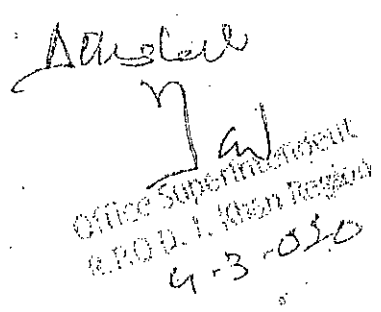 Attested
Office Superintendent
R.P.O D. I. Khan Region
4-3-020